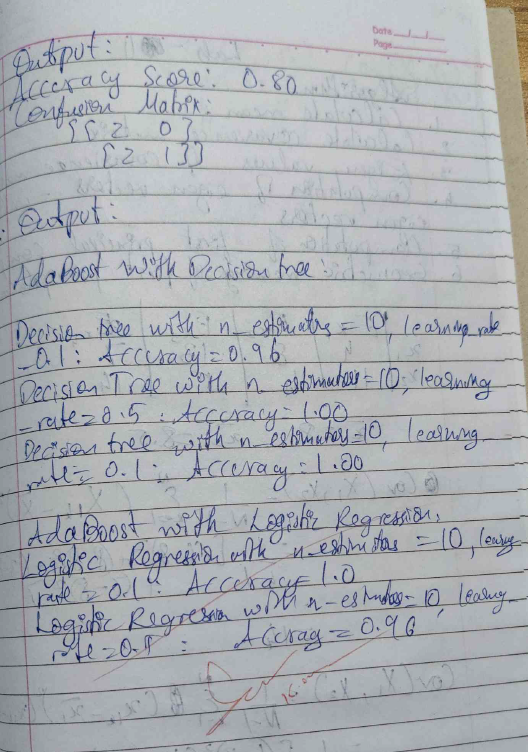 Date
Page
Output:
Accuracy Score: 0.80
Confusion Matrix:
[[2 0]
[2 1]]
Output:
AdaBoost with Decision tree:
Decision tree with n_estimators = 10, learning rate
-0.1: Accuracy = 0.96
Decision Tree with n estimators = 10, learning
-rate = 0.5 : Accuracy = 1.00
Decision tree with n_estimators = 10, learning
rate = 0.1 : Accuracy = 1.00
AdaBoost with Logistic Regression,
Logistic Regression with n_estimators = 10, learning
rate = 0.1 : Accuracy = 1.0
Logistic Regression with n-estimators = 10, learning
rate = 0. : Accuracy = 0.96